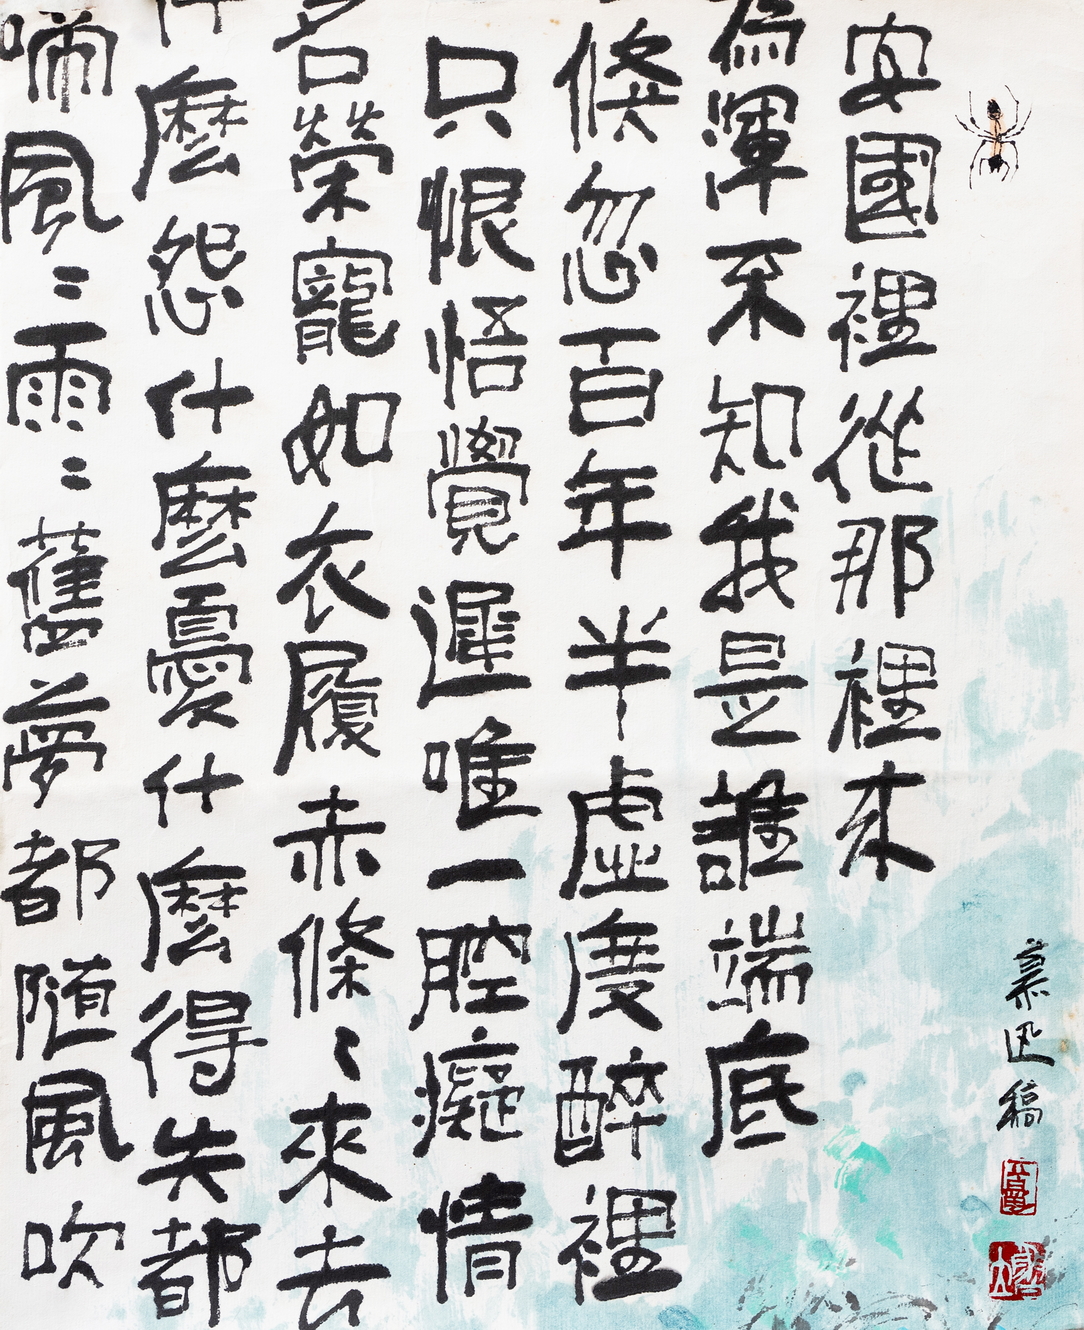 啼風〻雨〻舊夢都隨風吹
什麼怨什麼憂什麼得失都
名榮寵如衣履赤條〻來去
只恨悟覺遲唯一腔癡情
倏忽百年半虛度醉裡
為渾不知我是誰端底
安國裡從那裡來
慕迅稿